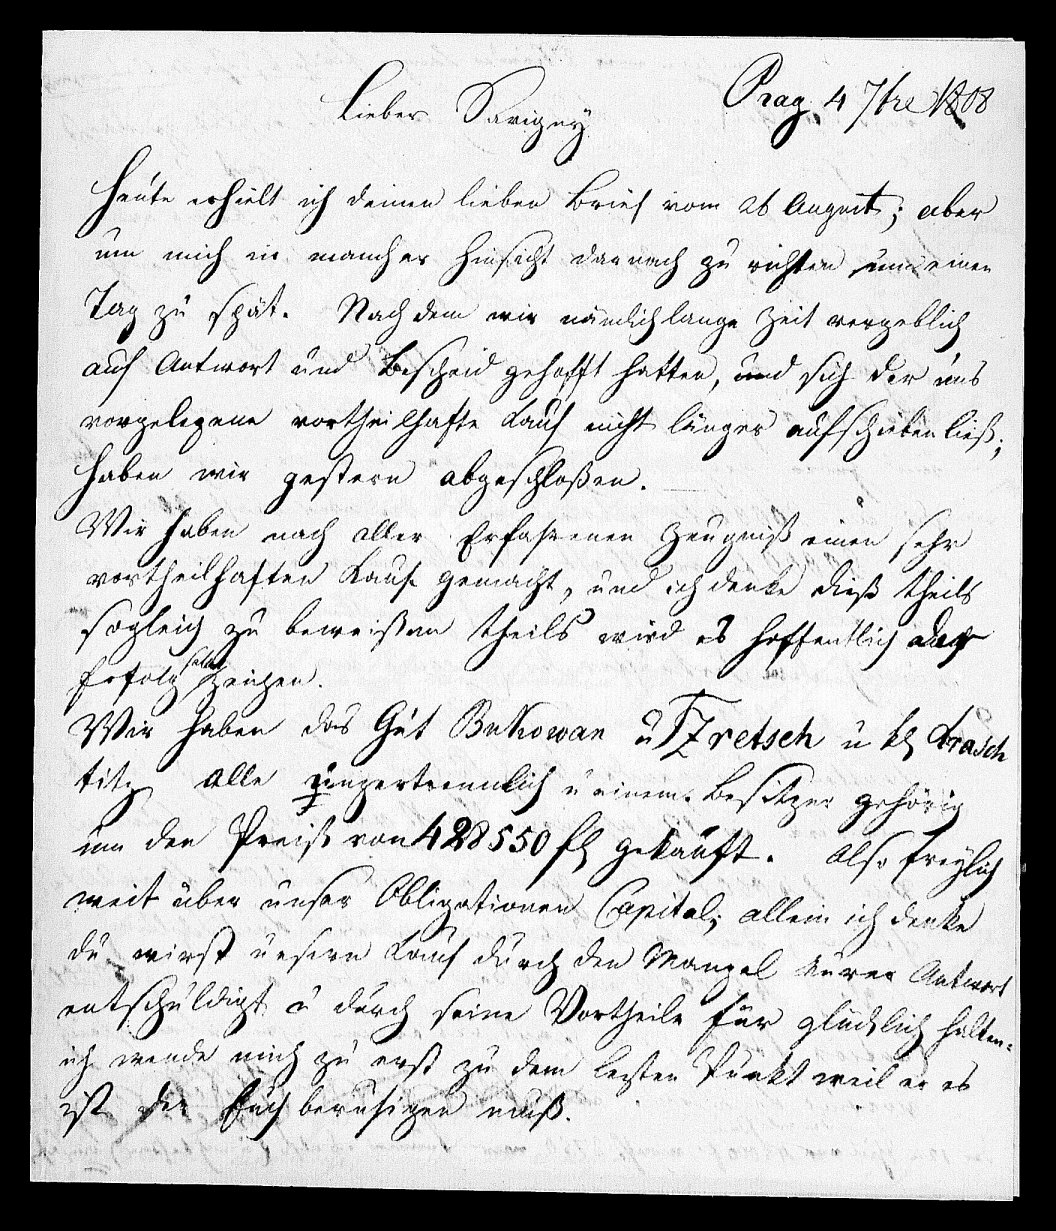 Prag, 4 7bre 1808
Lieber Savigny
Heute erhielt ich deinen lieben Brief vom 26 August; aber
um mich in mancher Hinsicht darnach zu richten um einen
Tag zu spät. Nachdem wir nämlich lange Zeit vergeblich
auf Antwort und Bescheid gehofft hatten, und sich der uns
vorgelegene vortheilhafte Kauf nicht länger aufschieben ließ;
haben wir gestern abgeschloßen.
Wir haben nach aller Erfahrenen Zeugniß einen sehr
vortheilhaften Kauf gemacht, und ich denke dieß theils
sogleich zu beweißen theils wird es hoffentlich der
Erfolg selbst zeigen.
Wir haben das Gut Bukowan u Tzretsch u kl Krasch
titz alle unzertrennlich u einem Besitzer gehörig
um den Preiß von 428550 fl gekauft. Also freylich
weit über unser Obligationen Capital; allein ich denke
du wirst unsern Kauf durch den Mangel Eurer Antwort
entschuldigt u durch seine Vortheile für glücklich halten.
ich wende mich zu erst zu dem lezten Punkt weil er es
ist der Euch beruhigen muß.